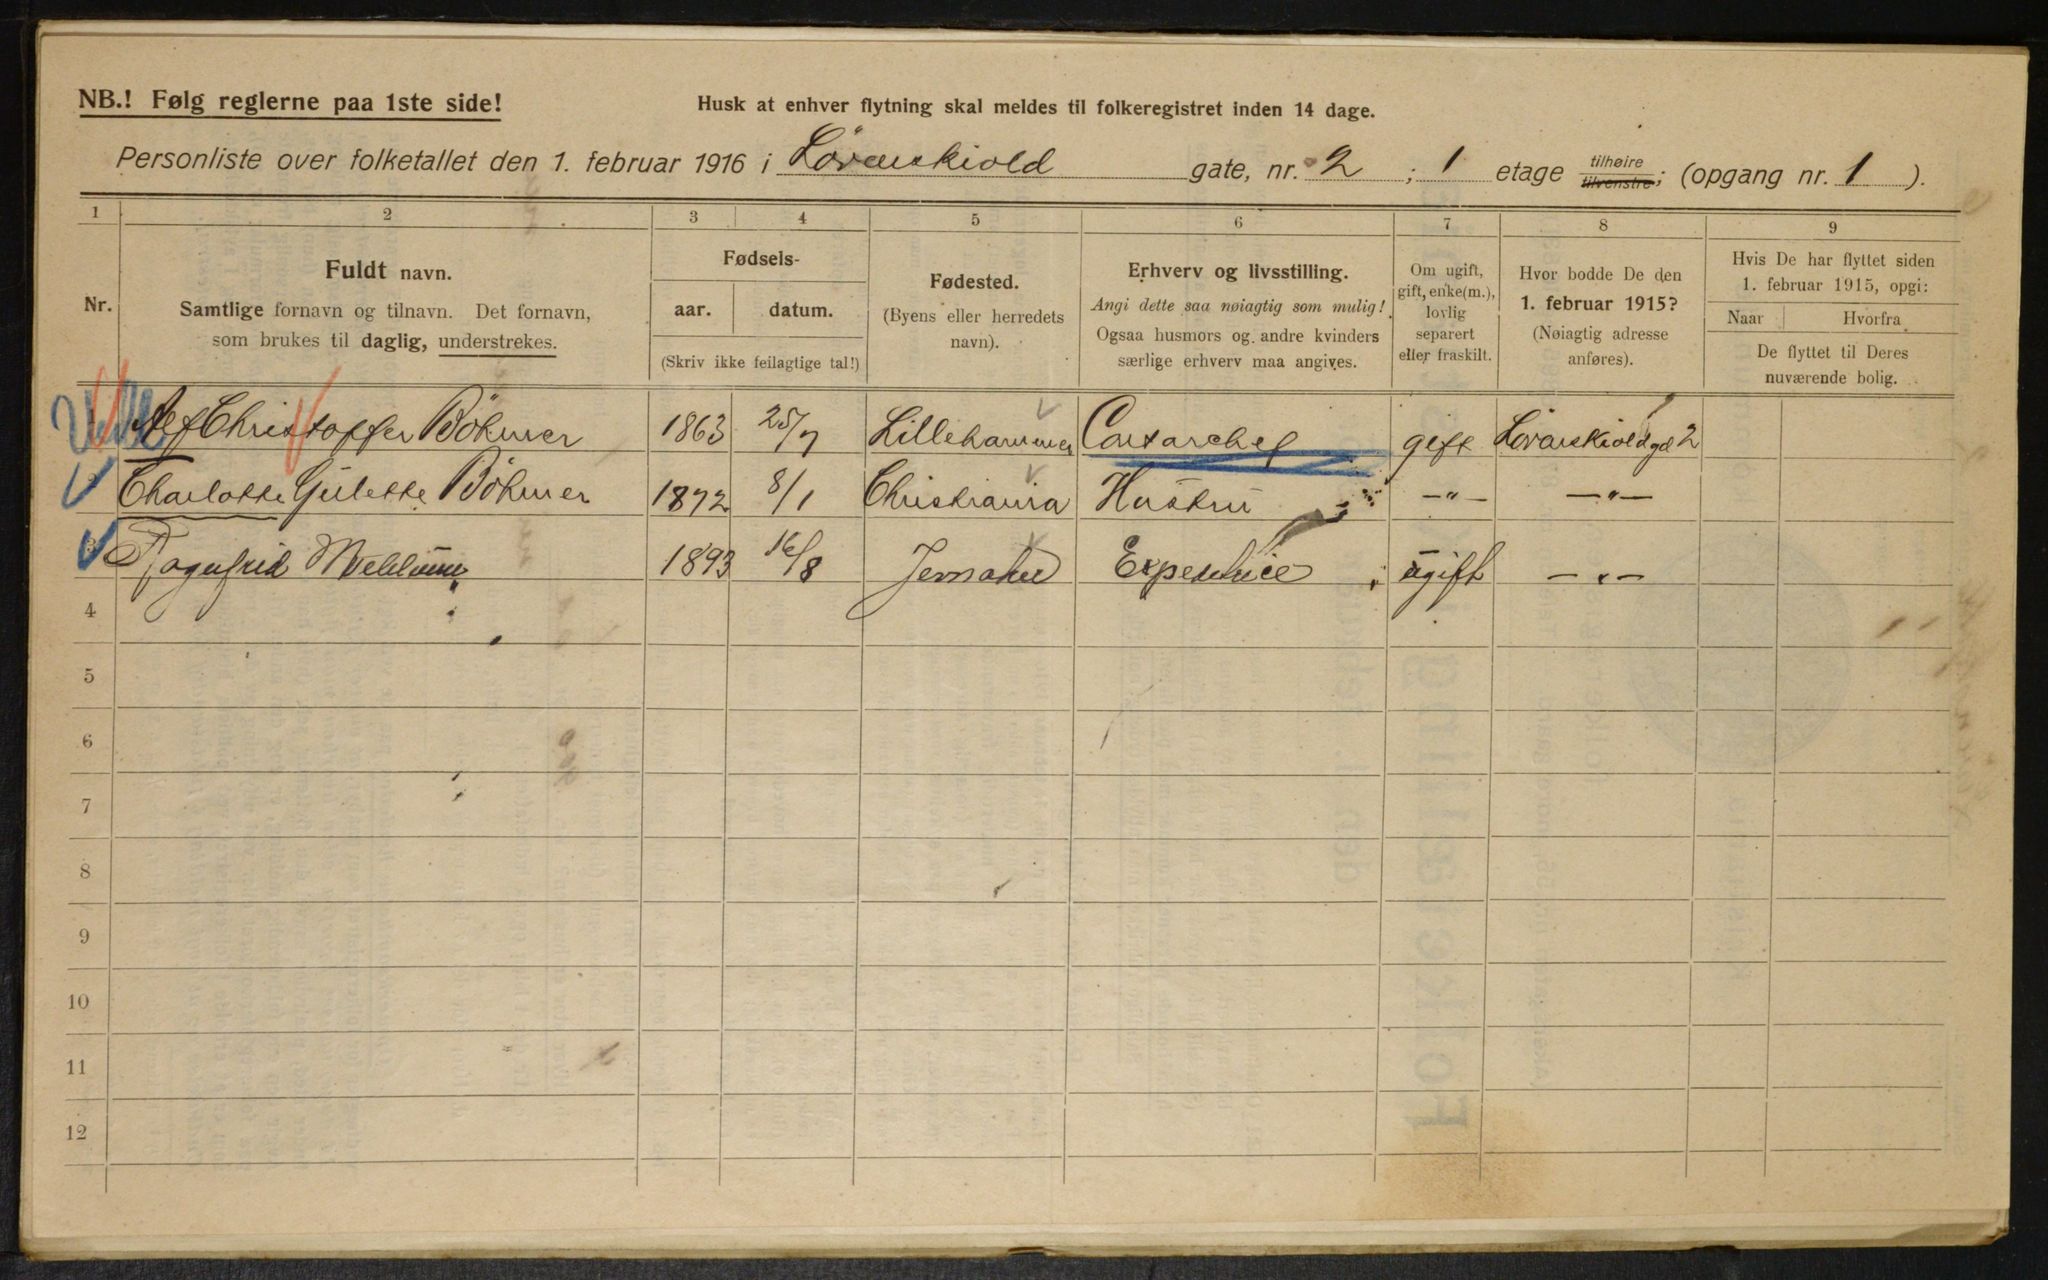 NB.! Følg reglerne paa 1ste side!
Husk at enhver flytning skal meldes til folkeregistret inden 14 dage.
Personliste over folketallet den 1. februar 1916 i Løvenskiold gate, nr. 2 ; 1 etage tilhøire tilvenstre; (opgang nr. 1 ).
1 2 3 4 5 6 7 8 9
Nr.
Fuldt navn.
Samtlige fornavn og tilnavn. Det fornavn,
som brukes til daglig, understrekes.
Fødsels-
aar. datum.
(Skriv ikke feilagtige tal!)
Fødested.
(Byens eller herredets
navn).
Erhverv og livsstilling.
Angi dette saa nøiagtig som mulig!
Ogsaa husmors og andre kvinders
særlige erhverv maa angives.
Om ugift,
gift, enke(m.),
lovlig
separert
eller fraskilt.
Hvor bodde De den
1. februar 1915?
(Nøiagtig adresse
anføres).
Hvis De har flyttet siden
1. februar 1915, opgi:
Naar Hvorfra
De flyttet til Deres
nuværende bolig.
Christoffer Bøhmer 1863 25/7 Lillehammer gift Løvenskioldgd 2
Charlotte Gulette Bøhmer 1872 8/1 Christiania Hustru —"— —"—
3 Ragnfrid 1893 16/8 ugift —"—
4
5
6
7
8
9
10
11
12